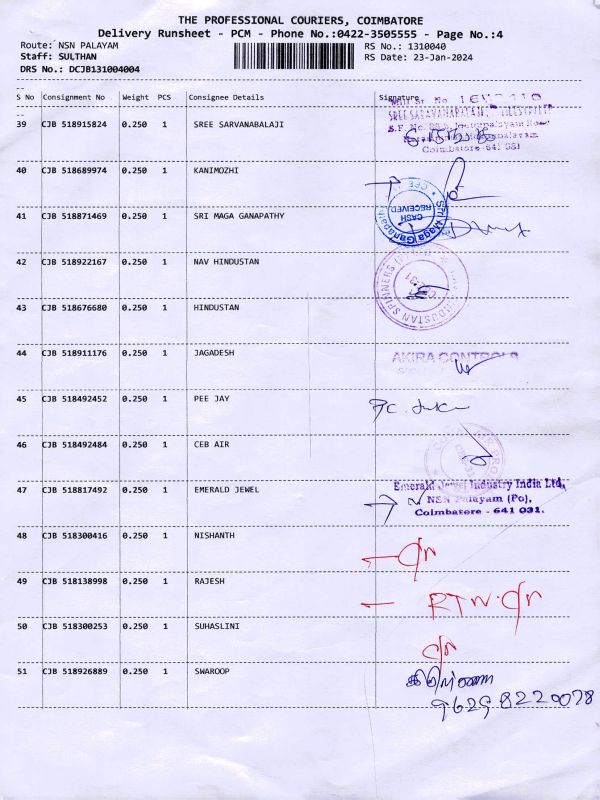 THE PROFESSIONAL COURIERS, COIMBATORE
Delivery Runsheet - PCM - Phone No.:0422-3505555 - Page No.:4
Route: NSN PALAYAM
RS No.: 1310040
Staff: SULTHAN
RS Date: 23-Jan-2024
DRS No.: DCJB131004004
S No Consignment No Weight PCS Consignee Details Signature
39 CJB 518915824 0.250 1 SREE SARVANABALAJI
Coimbatore-641 031
40 CJB 518689974 0.250 1 KANIMOZHI
41 CJB 518871469 0.250 1 SRI MAGA GANAPATHY
CASH RECEIVED
42 CJB 518922167 0.250 1 NAV HINDUSTAN
HINDUSTAN SPINNERS
43 CJB 518676680 0.250 1 HINDUSTAN
44 CJB 518911176 0.250 1 JAGADESH
AKIRA CONTROLS
45 CJB 518492452 1 PEE JAY
0.250
46 CJB 518492484 0.250 1 CEB AIR
47 CJB 518817492 0.250 1 EMERALD JEWEL
Emerald Jewel Industry India Ltd,
NSN Palayam (Po),
Coimbatore - 641 031.
48 CJB 518300416 0.250 1 NISHANTH
49 CJB 518138998 0.250 1 RAJESH
50 CJB 518300253 0.250 1 SUHASLINI
51 CJB 518926889 0.250 1 SWAROOP
96298220078